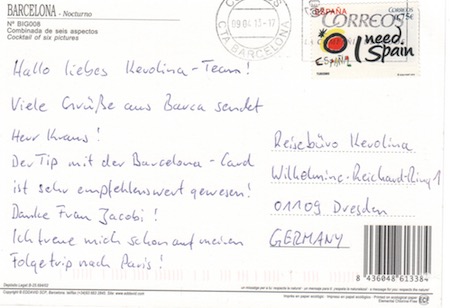 BARCELONA - Nocturno
Nº BIG008
Combinada de seis aspectos
Cocktail of six pictures
CORREOS
09 04 13 - 17
CTA BARCELONA
ESPAÑA
CORREOS
I need
Spain
Hallo liebes Kerolina-Team!
Viele Grüße aus Barca sendet
Herr Kraus!
Der Tip mit der Barcelona-Card
ist sehr empfehlenswert gewesen!
Danke Frau Jacobi!
Ich freue mich schon auf meinen
Folgetrip nach Paris!
Reisebüro Kerolina
Wilhelmine-Reichard-Ring 1
01109 Dresden
GERMANY
8 436048 61338